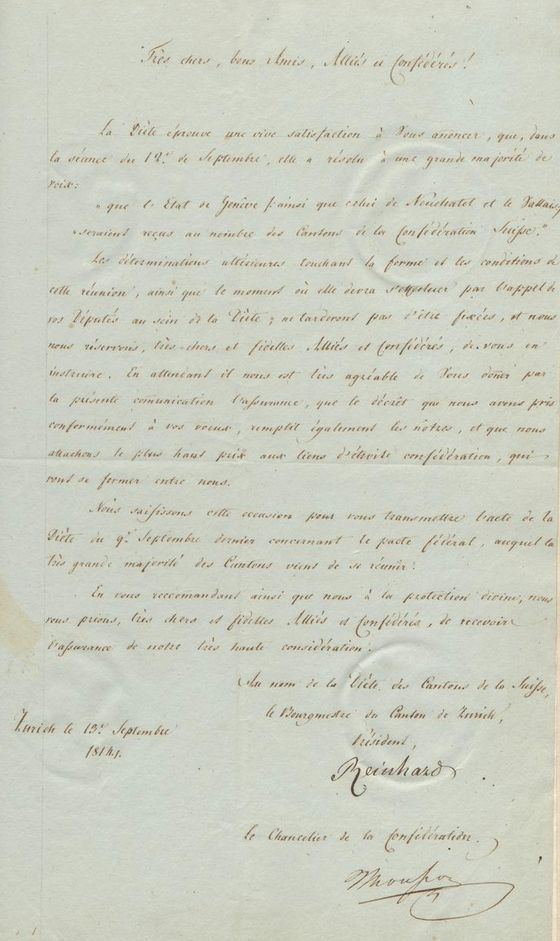 Très chers, bons Amis, Alliés et Confédérés!
La Diète éprouve une vive satisfaction à Vous anoncer, que, dans
la séance du 12.e de Septembre, elle a résolu à une grande majorité de
voix:
"que l'Etat de Genêve /:ainsi que celui de Neuchatel et le Vallais:/
"seraient reçus au nombre des Cantons de la Confédération Suisse."
Les déterminations ultérieures touchant la forme et les conditions de
cette réunion, ainsi que le moment où elle devra s'effectuer par l'appel de
vos Députés au sein de la Diète, ne tarderont pas d'être fixées, et nous
nous réservons, très chers et fidelles Alliés et Confédérés, de vous en
instruire. En attendant il nous est très agréable de Vous doñer par
la présente comunication l'assurance, que le décrêt que nous avons pris
conformément à vos voeux, remplit également les notres, et que nous
attachons le plus haut prix aux liens d'étroite confédération, qui
vont se former entre nous.
Nous saisissons cette occasion pour vous transmettre l'acte de la
Diète du 9.e Septembre dernier concernant le pacte fédéral, auquel la
très grande majorité des Cantons vient de se réunir.
En vous reccomandant ainsi que nous à la protection divine, nous
vous prions, très chers et fidelles Alliés et Confédérés, de recevoir
l'assurance de notre très haute considération.
Au nom de la Diète des Cantons de la Suisse,
le Bourgmestre du Canton de Zurich,
Président,
Reinhard
Zurich le 13.e Septembre
1814.
Le Chancelier de la Confédération.
Mousson